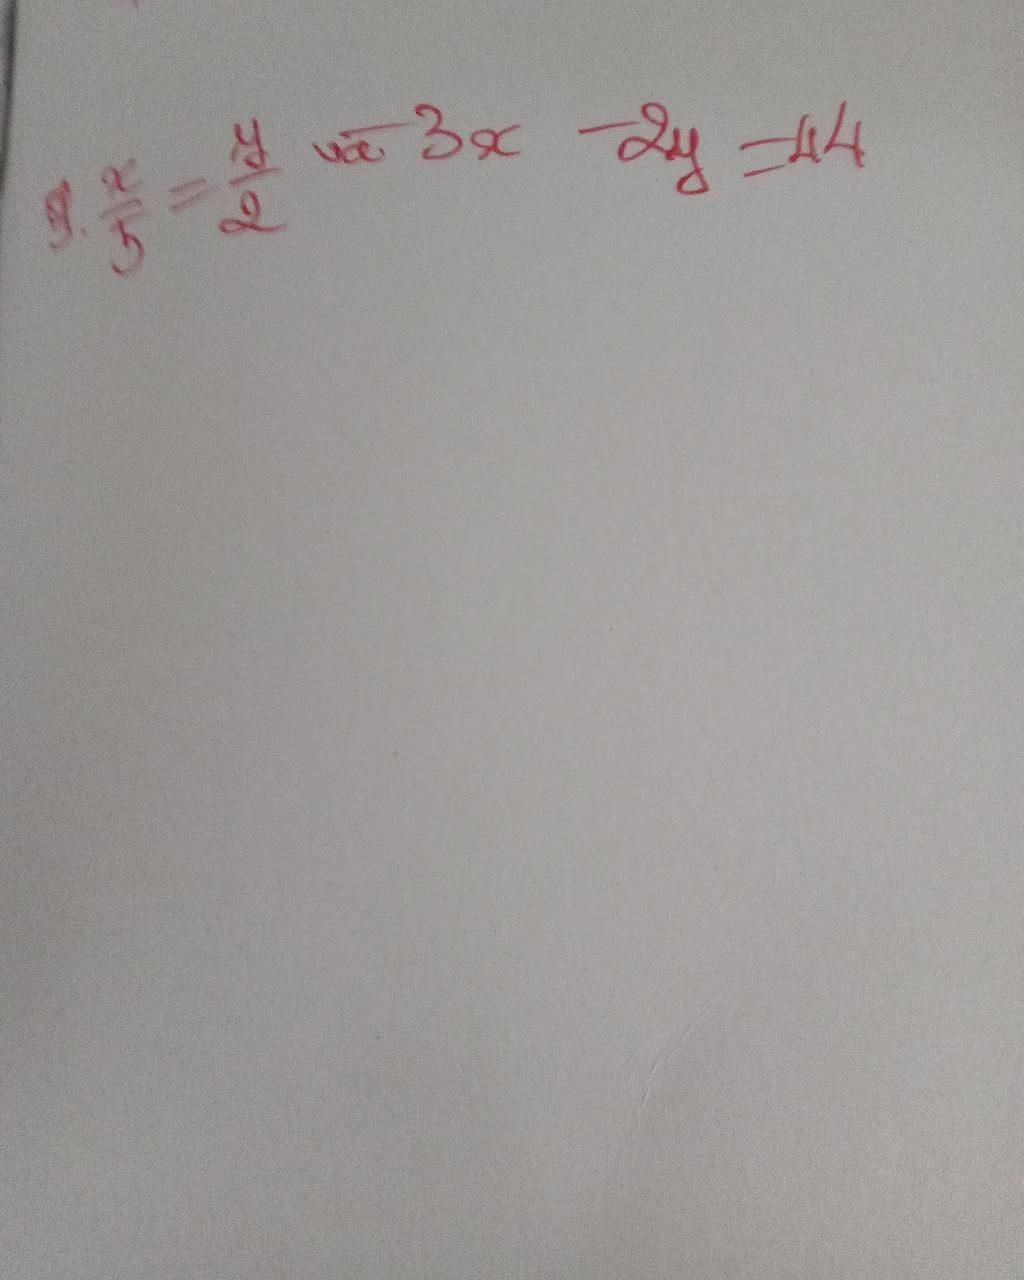 g. x/5 = y/2 và 3x - 2y = 44